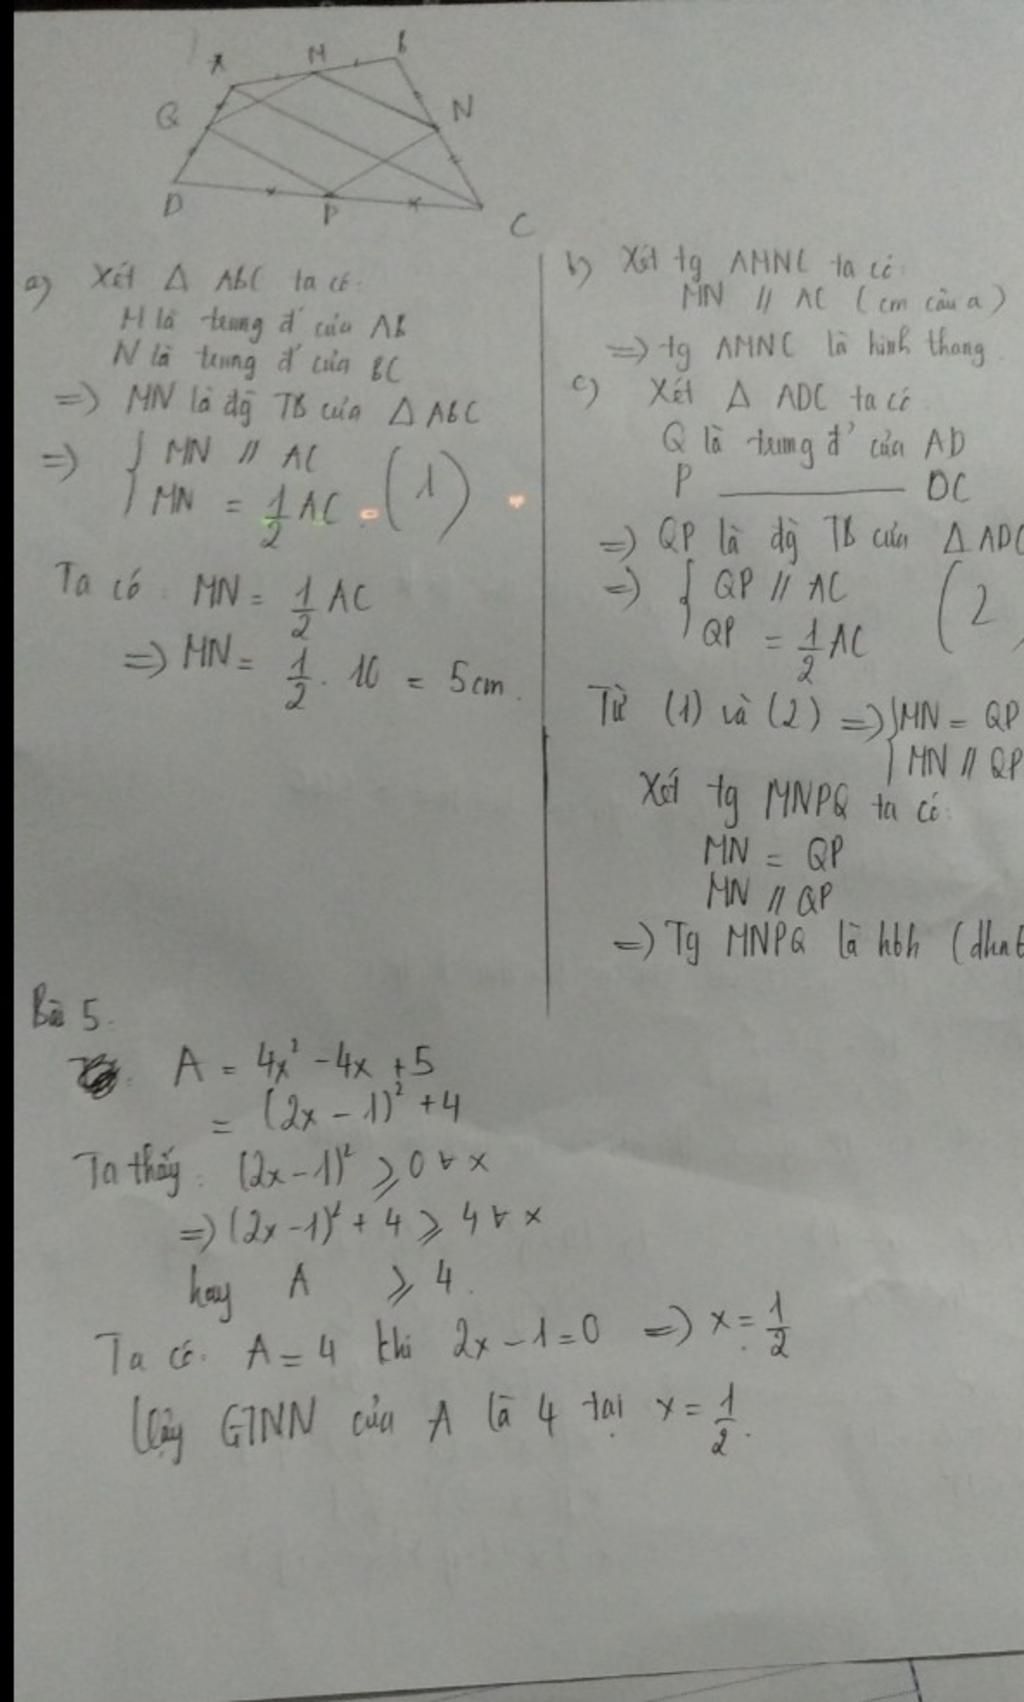 A M B
Q N
D P C
a) Xét Δ ABC ta có:
M là trung đ' của AB
N là trung đ' của BC
=> MN là đg TB của Δ ABC
=> { MN // AC
MN = 1/2 AC (1)
Ta có: MN = 1/2 AC
=> MN = 1/2 . 10 = 5cm.
b) Xét tg AMNC ta có:
MN // AC (cm câu a)
=> tg AMNC là hình thang
c) Xét Δ ADC ta có
Q là trung đ' của AD
P ——— DC
=> QP là đg TB của Δ ADC
=> { QP // AC
QP = 1/2 AC (2
Từ (1) và (2) => { MN = QP
MN // QP
Xét tg MNPQ ta có:
MN = QP
MN // QP
=> Tg MNPQ là hbh (dhnb
Bài 5.
A = 4x² - 4x + 5
= (2x - 1)² + 4
Ta thấy: (2x - 1)² ⩾ 0 ∀ x
=> (2x - 1)² + 4 ⩾ 4 ∀ x
hay A ⩾ 4.
Ta có: A = 4 khi 2x - 1 = 0 => x = 1/2
Vậy GTNN của A là 4 tại x = 1/2.